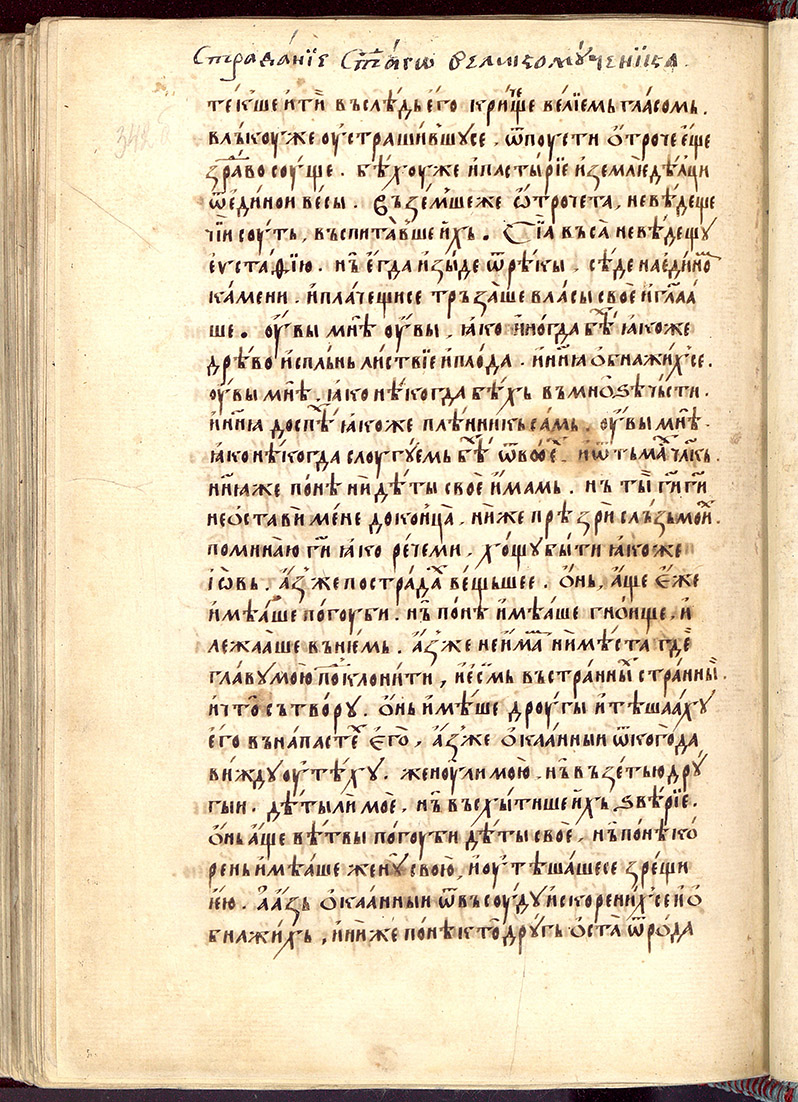 Страданїе ст҃аго великомꙋченика.
текꙋше и ти въслѣдь его крищꙋще велїемь гласомь.
влькоу же оустрашившꙋсе, ѿпоусти ѻтроче еще
здраво соуще. бѣхоу же и пастырїе и землїедѣлци
ѿ единои вьсы. Въземше же ѻтрочета, не вѣдеще
чїи соуть, въспиташе ихь. Сїа въса не вѣдещꙋ
еѵстаѳїю. нь егда изыде ѿ рѣкы, сѣде на единѡ
камени. и плачещисе тръзаше власы свое и гл҃аа
ше. оувы мнѣ оувы, ꙗко иногда бѣ ꙗкоже
дрѣво испльнь листвїе и плода. и нн҃ꙗ ѻбнажих се.
оувы мнѣ, ꙗко нѣкогда бѣхь въ мноѕѣ чьсти.
и нн҃ꙗ доспѣ ꙗкоже плѣнникь самь. оувы мнѣ.
ꙗко нѣкогда слоугꙋемь бѣ ѿ вѡѡе и ѿ тьма чл҃кь.
нн҃ꙗ же понѣ ни дѣты свое имамь. нъ ты г҃и г҃и
не ѻстави мене до конца, ниже прѣзри сльзь мои.
поминаю г҃и ꙗко рече ми, хощꙋ быти ꙗкоже
іѡвь. аз же пострада вещьшее. ѻнь, аще еже
имѣаше погоуби. нь понѣ имѣаше гноище, и
лежааше въ нїемь. аз же не има ни мѣста где
главꙋ мою поклонити, и есмь въ странны странны.
и что сътворꙋ. ѻнь имѣше дроугы и тѣшаахꙋ
его въ напасте его, аз же ѻкаанныи ѿ кого да
виждꙋ оутѣхꙋ. женоу ли мою, нь въ зетью дрꙋ
гыи. дѣты ли мое, нь въсхытише ихь ѕвѣрїе.
ѻнь аще вѣтвы погоуби дѣты свое, нь понѣ ко
рень имѣаше женꙋ свою, и оутѣшашесе зрещи
ию. А азь ѻкаанныи ѿвъсоудꙋ искорених се и ѻ
бнажихь, и ниже понѣ кто дрꙋгь ѻста ѿ рода